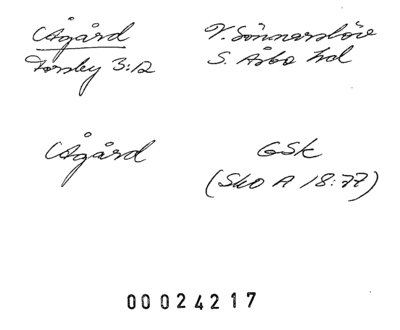 Ågård
Torsby 3:12
V. Sönnarslöv
S. Åsbo hd
Ågård
GSK
(Sko A 18:77)
00024217